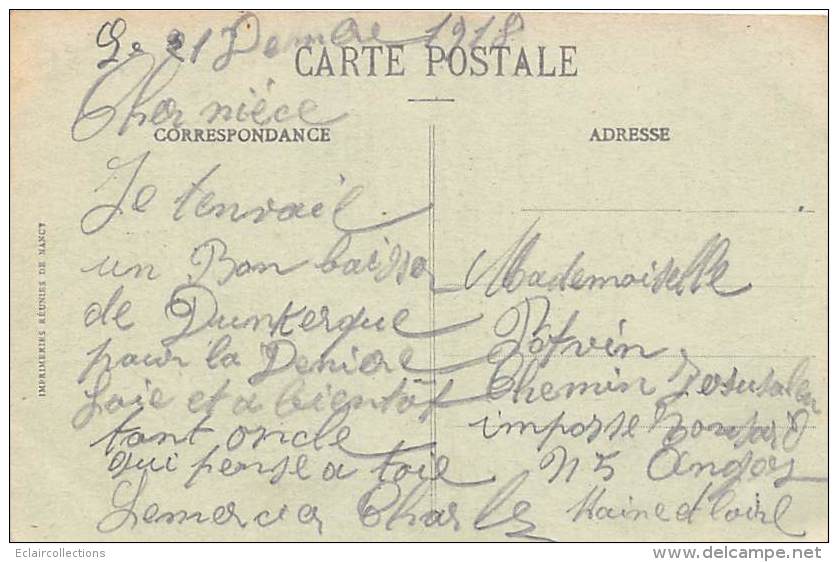 Le 21 Decmbre 1918
CARTE POSTALE
Cher nièce
CORRESPONDANCE
ADRESSE
Je tenvail
un Bon baisser
de Dunkerque
pour la Deniere
foie et a bientôt
tant oncle
qui pense a toie
Lemercier Charles
Mademoiselle
Potvin
Chemin Jerusalem
impasse Ronsard
N 5 Angers
Maine et loire
IMPRIMERIES RÉUNIES DE NANCY
Eclaircollections
www.delcampe.net